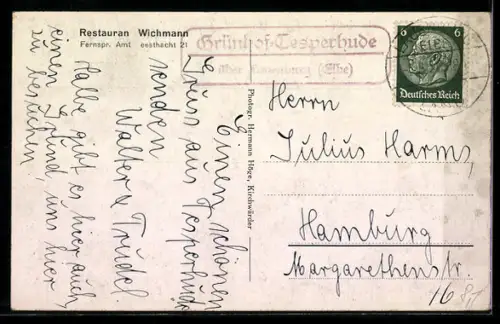 Restauran Wichmann
Fernspr. Amt eesthacht 21
Grünhof-Tesperhude
über Lauenburg (Elbe)
6 6
Deutsches Reich
Photogr. Hermann Höge, Kirchwärder
Einen schönen
Gruss aus Tesperhude
senden
Walter & Trudel.
Halbe gibt es hier auch,
einen Grund, uns hier
zu besuchen.
Herrn
Julius Harms,
Hamburg
Margarethenstr.
16